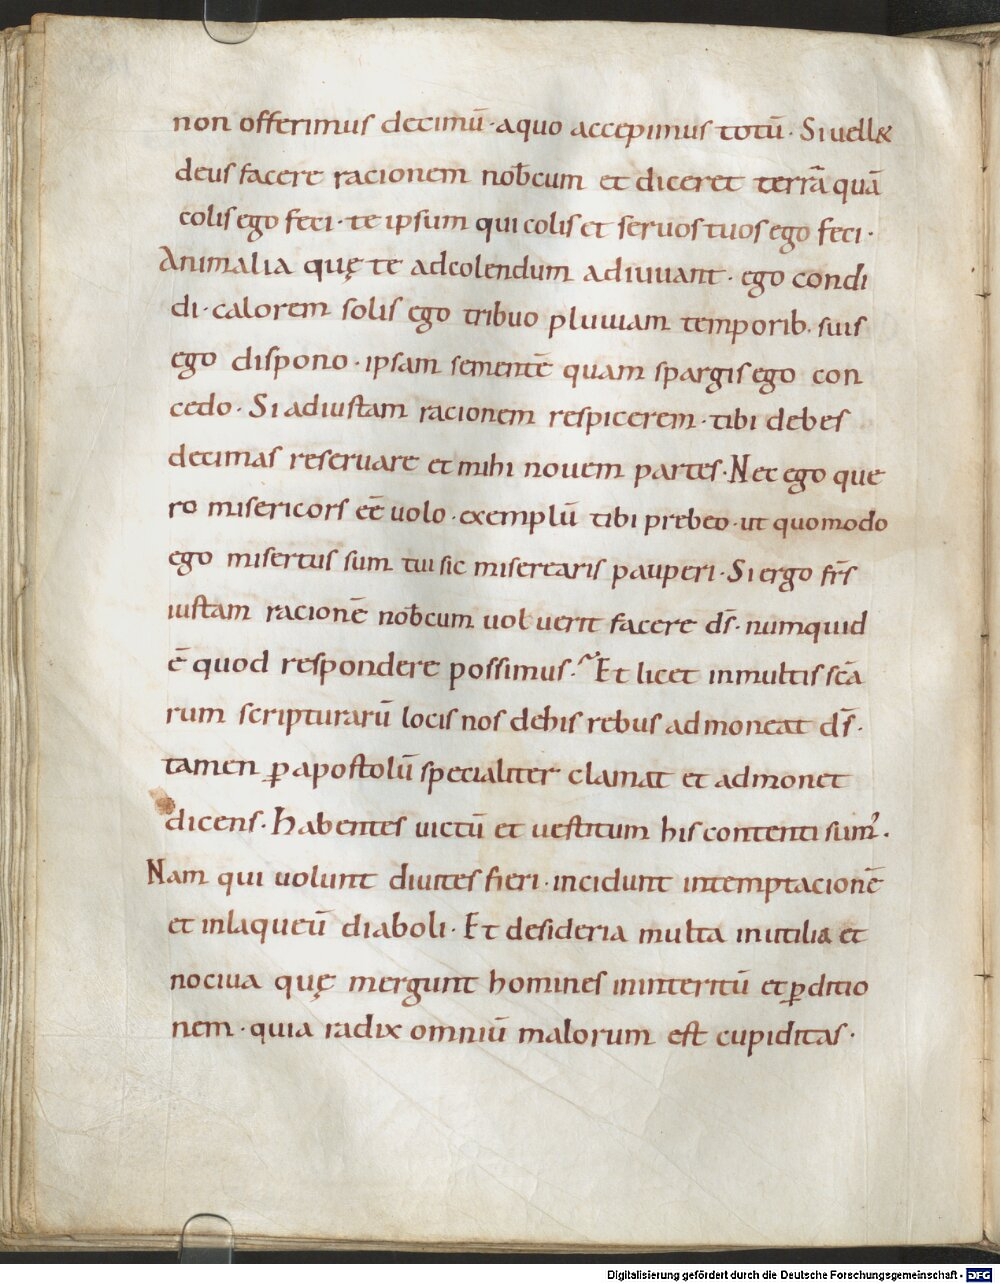 non offerimus decimū · aquo accepimus totū · Si uell&
deus facere racionem nob̄cum et diceret terrā quā
colis ego feci · te ipsum qui colis et seruos tuos ego feci ·
Animalia quę te adcolendum adiuuant · ego condi
di · calorem solis ego tribuo pluuiam temporib. suis
ego dispono · ipsam sementē quam spargis ego con
cedo · Si ad iustam racionem respicerem · tibi debes
decimas reseruare et mihi nouem partes · Nec ego que
ro misericors eē uolo · exemplū tibi prebeo · ut quomodo
ego misertus sum tui sic miserearis pauperi · Si ergo fr̄s
iustam racionē nob̄cum uoluerit facere ds̄ · numquid
ē quod respondere possimus · Et licet inmultis scā
rum scripturarū locis nos dehis rebus admoneat ds̄ ·
tamen ꝑ apostolū specialiter clamat et admonet
dicens · Habentes uictū et uestitum his contenti sum᷒ ·
Nam qui uolunt diuites fieri · incidunt intemptacionē
et inlaqueū diaboli · Et desideria multa inutilia et
nociua quę mergunt homines ininteritū et ꝑditio
nem · quia radix omniū malorum est cupiditas ·
Digitalisierung gefördert durch die Deutsche Forschungsgemeinschaft - DFG